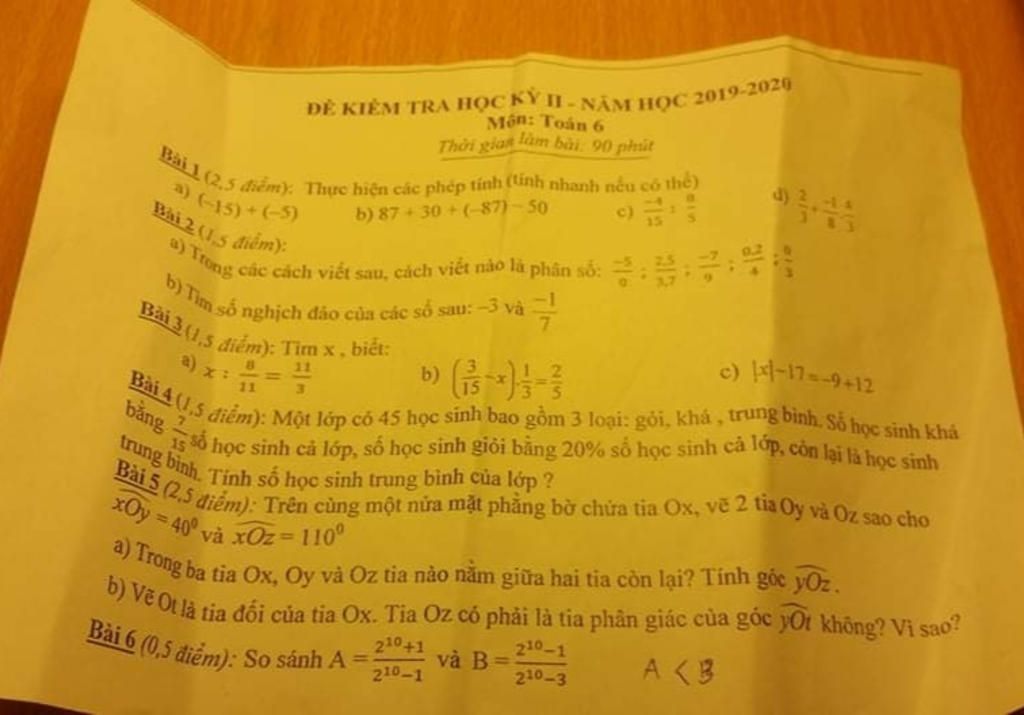 ĐỀ KIỂM TRA HỌC KỲ II - NĂM HỌC 2019-2020
Môn: Toán 6
Thời gian làm bài: 90 phút
Bài 1 (2,5 điểm): Thực hiện các phép tính (tính nhanh nếu có thể)
a) (−15) + (−5) b) 87 + 30 + (−87) − 50 c) -4/15 : 8/5 d) 2/3 + -1/8 . 4/3
Bài 2 (1,5 điểm):
a) Trong các cách viết sau, cách viết nào là phân số: -5/0 ; 2,5/3,7 ; -7/9 ; 0,2/4 ; 0/3
b) Tìm số nghịch đảo của các số sau: −3 và -1/7
Bài 3 (1,5 điểm): Tìm x , biết:
a) x : 8/11 = 11/3 b) (3/15 − x) . 1/3 = 2/5 c) |x| − 17 = −9 + 12
Bài 4 (1,5 điểm): Một lớp có 45 học sinh bao gồm 3 loại: gỏi, khá , trung bình. Số học sinh khá
bằng 7/15 số học sinh cả lớp, số học sinh giỏi bằng 20% số học sinh cả lớp, còn lại là học sinh
trung bình. Tính số học sinh trung bình của lớp ?
Bài 5 (2,5 điểm): Trên cùng một nửa mặt phẳng bờ chứa tia Ox, vẽ 2 tia Oy và Oz sao cho
xOy = 40⁰ và xOz = 110⁰
a) Trong ba tia Ox, Oy và Oz tia nào nằm giữa hai tia còn lại? Tính góc yOz .
b) Vẽ Ot là tia đối của tia Ox. Tia Oz có phải là tia phân giác của góc yOt không? Vì sao?
Bài 6 (0,5 điểm): So sánh A = 2¹⁰+1/2¹⁰−1 và B = 2¹⁰−1/2¹⁰−3 A < B